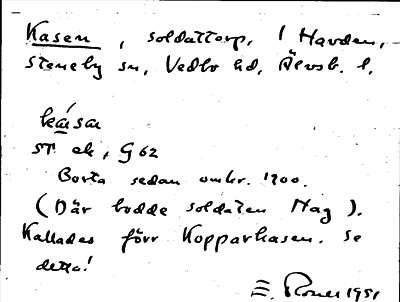 Kasen, soldattorp, / Havden,
Steneby sn, Vedbo hd, Älvsb. l.
kásaṛ
ST. ek, G 62
Borta sedan omkr. 1900.
(Där bodde soldaten Hag).
Kallades förr Kopparkasen. Se
detta!
E. 1951